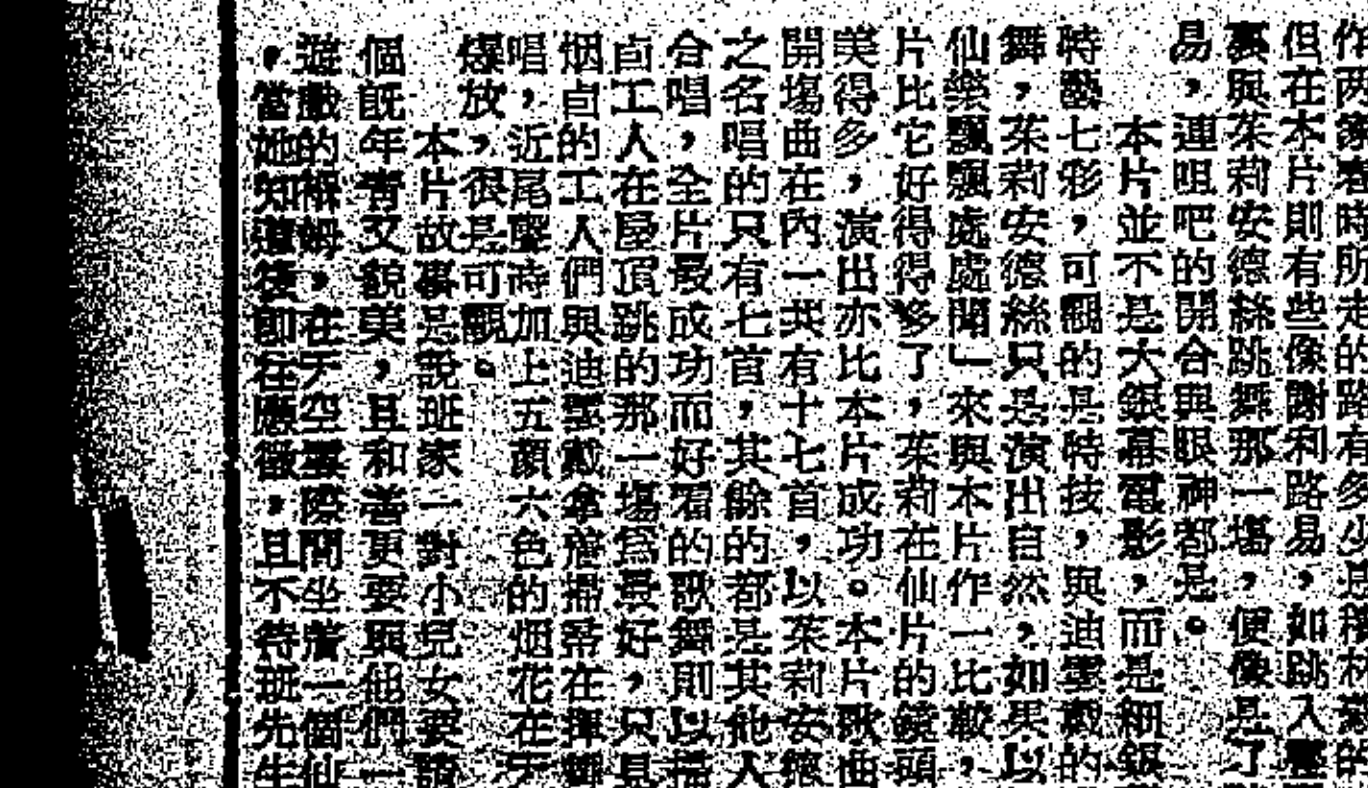 作两條看時所走的路有多少是
但在本片則有些像謝利路易，如跳入
裏與茱莉安德絲跳舞那一塲，便像是了
易，連咀吧的開合與眼神都是。
本片並不是大銀幕電影，而是細銀
特藝七彩，可觀的是特技，與迪雲戴的
舞，茱莉安德絲只是演出自然，如果以
仙樂飄飄處處聞」來與本片作一比較，
片比它好得得多了，茱莉在仙片的鏡頭
美得多，演出亦比本片成功。本片歌曲
開塲曲在內一共有十七首，以茱莉安德
之名唱的只有七首，其餘的都是其他人
合唱，全片最成功而好看的歌舞則以掃
卣工人在屋頂跳的那一塲爲最好，只見
烟卣的工人們與迪雲戴拿着掃帚在揮舞
唱，近尾聲時加上五顏六色的烟花在天
爆放，很是可觀。
本片故事是說班家一對小兒女要請
個既年青又貌美，且和善更要與他們一
遊戲的褓姆，在天空雲際間坐着一個仙
，當她知道後卽在應徵，且不待班先生